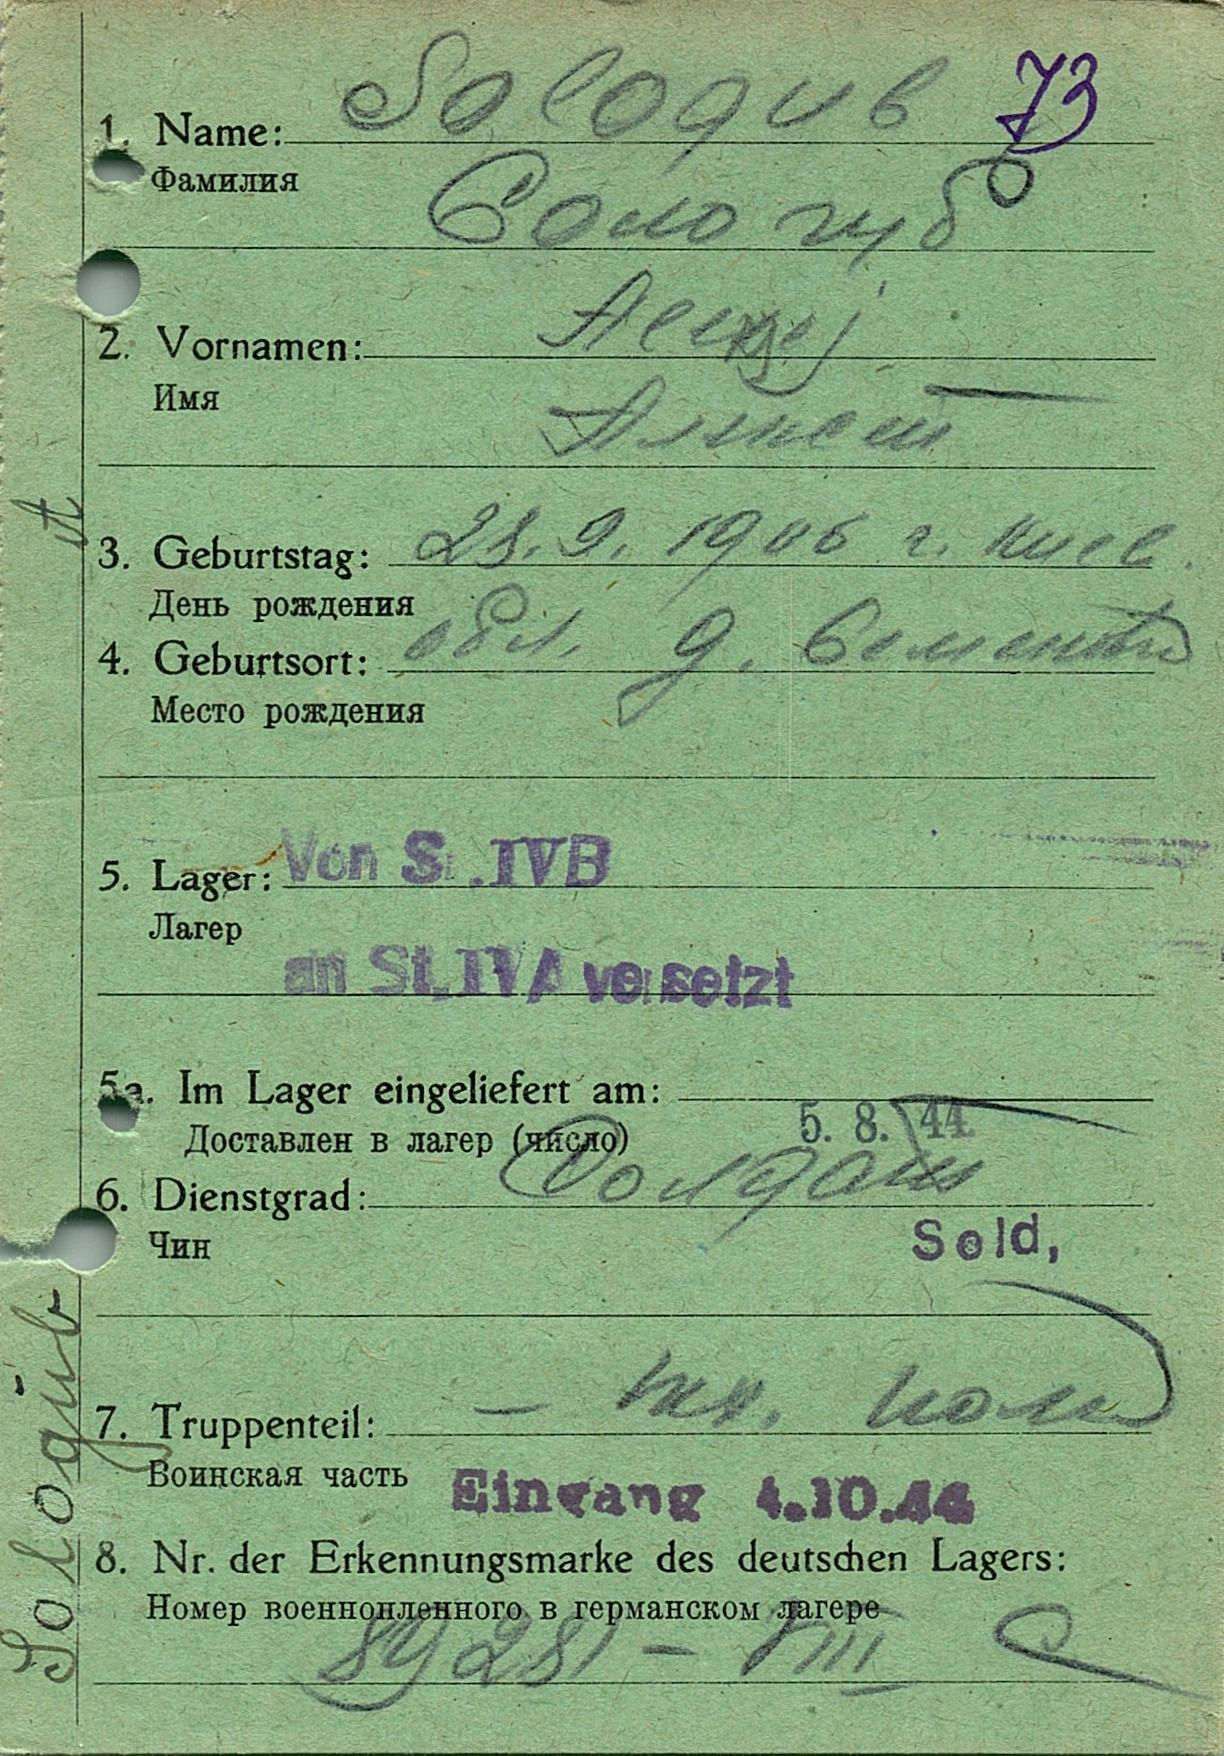 73
1. Name: Sologub
Фамилия
Сологуб
2. Vornamen:
Имя
3. Geburtstag: 28. 9. 1906 г. Киев.
День рождения
4. Geburtsort: обл. д.
Место рождения
5. Lager: Von S .IVB
Лагер
an St.IVA versetzt
5a. Im Lager eingeliefert am:
Доставлен в лагер (число) 5. 8. 44
6. Dienstgrad: Солдат
Чин Sold,
7. Truppenteil: –
Воинская часть Eingang 4.10.44
8. Nr. der Erkennungsmarke des deutschen Lagers:
Номер военнопленного в германском лагере
89281 – VIII
Sologub